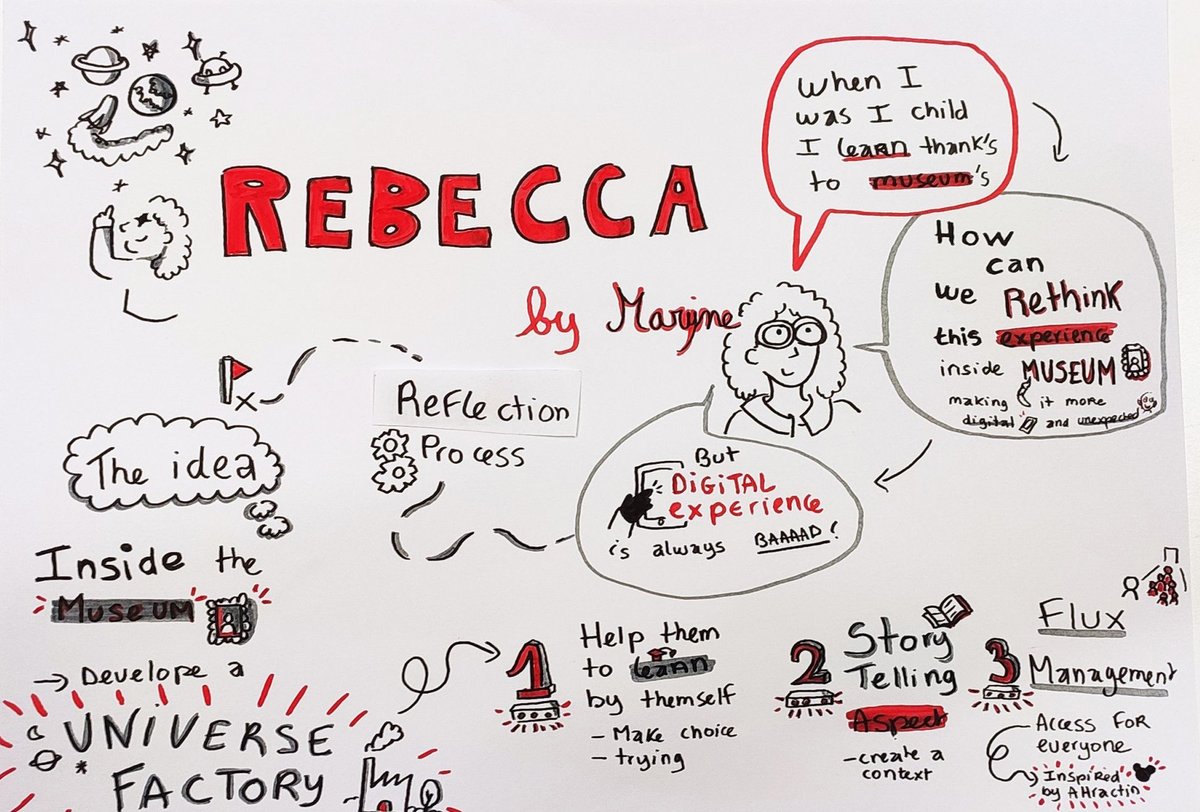 REBECCA
by Maryne
When I
was I child
I learn thank's
to museum's
How
can
we Rethink
this experience
inside MUSEUM
making it more
digital and unexpected
But
DIGITAL
experience
is always BAAAAD!
Reflection
Process
The idea
Inside the
Museum
→ Develope a
UNIVERSE
FACTORY
1
Help them
to learn
by themself
- Make choice
- trying
2
Story
Telling
Aspect
- create a
context
3
Flux
Management
Access for
everyone
Inspired
by AHractin